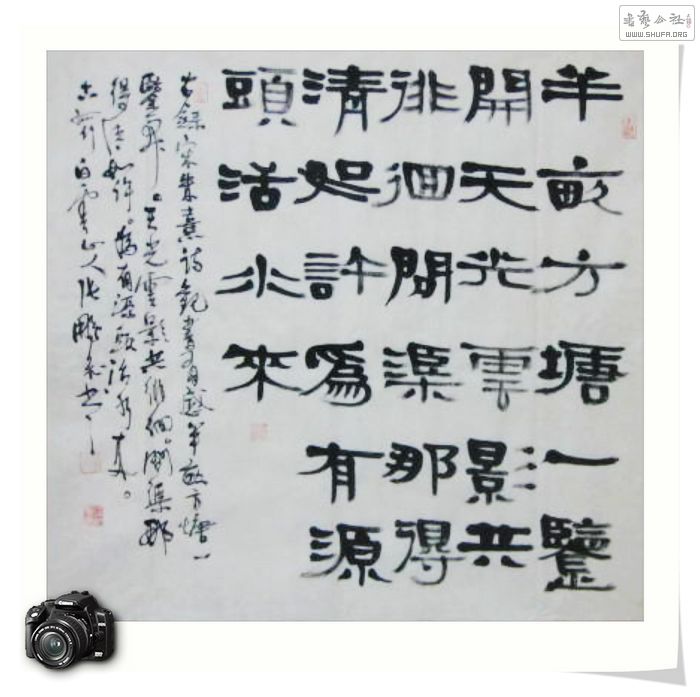 書藝公社
WWW.SHUFA.ORG
半畝方塘一鑒
開天光雲影共
徘徊問渠那得
清如許為有源
頭活水來
錄宋朱熹詩觀書有感半畝方塘一
鑒開。天光雲影共徘徊。問渠那
得清如許。為有源頭活水來。
白雲山人張鵬書
Canon